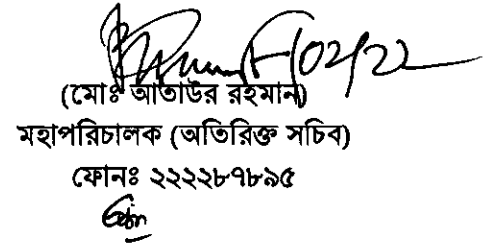 02/22
(মোঃ আতাউর রহমান)
মহাপরিচালক (অতিরিক্ত সচিব)
ফোনঃ ২২২২৮৭৮৯৫